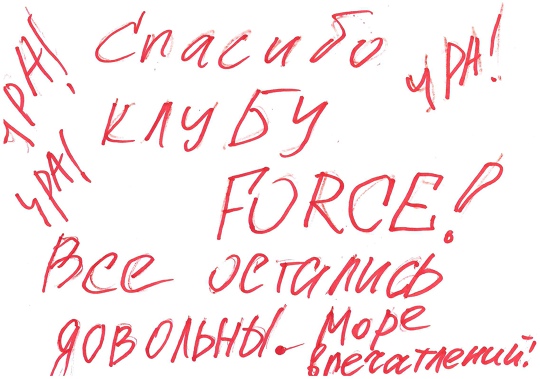 Спасибо
УРА!
УРА!
клубу
УРА!
FORCE!
Все остались
довольны. Море
впечатлений!